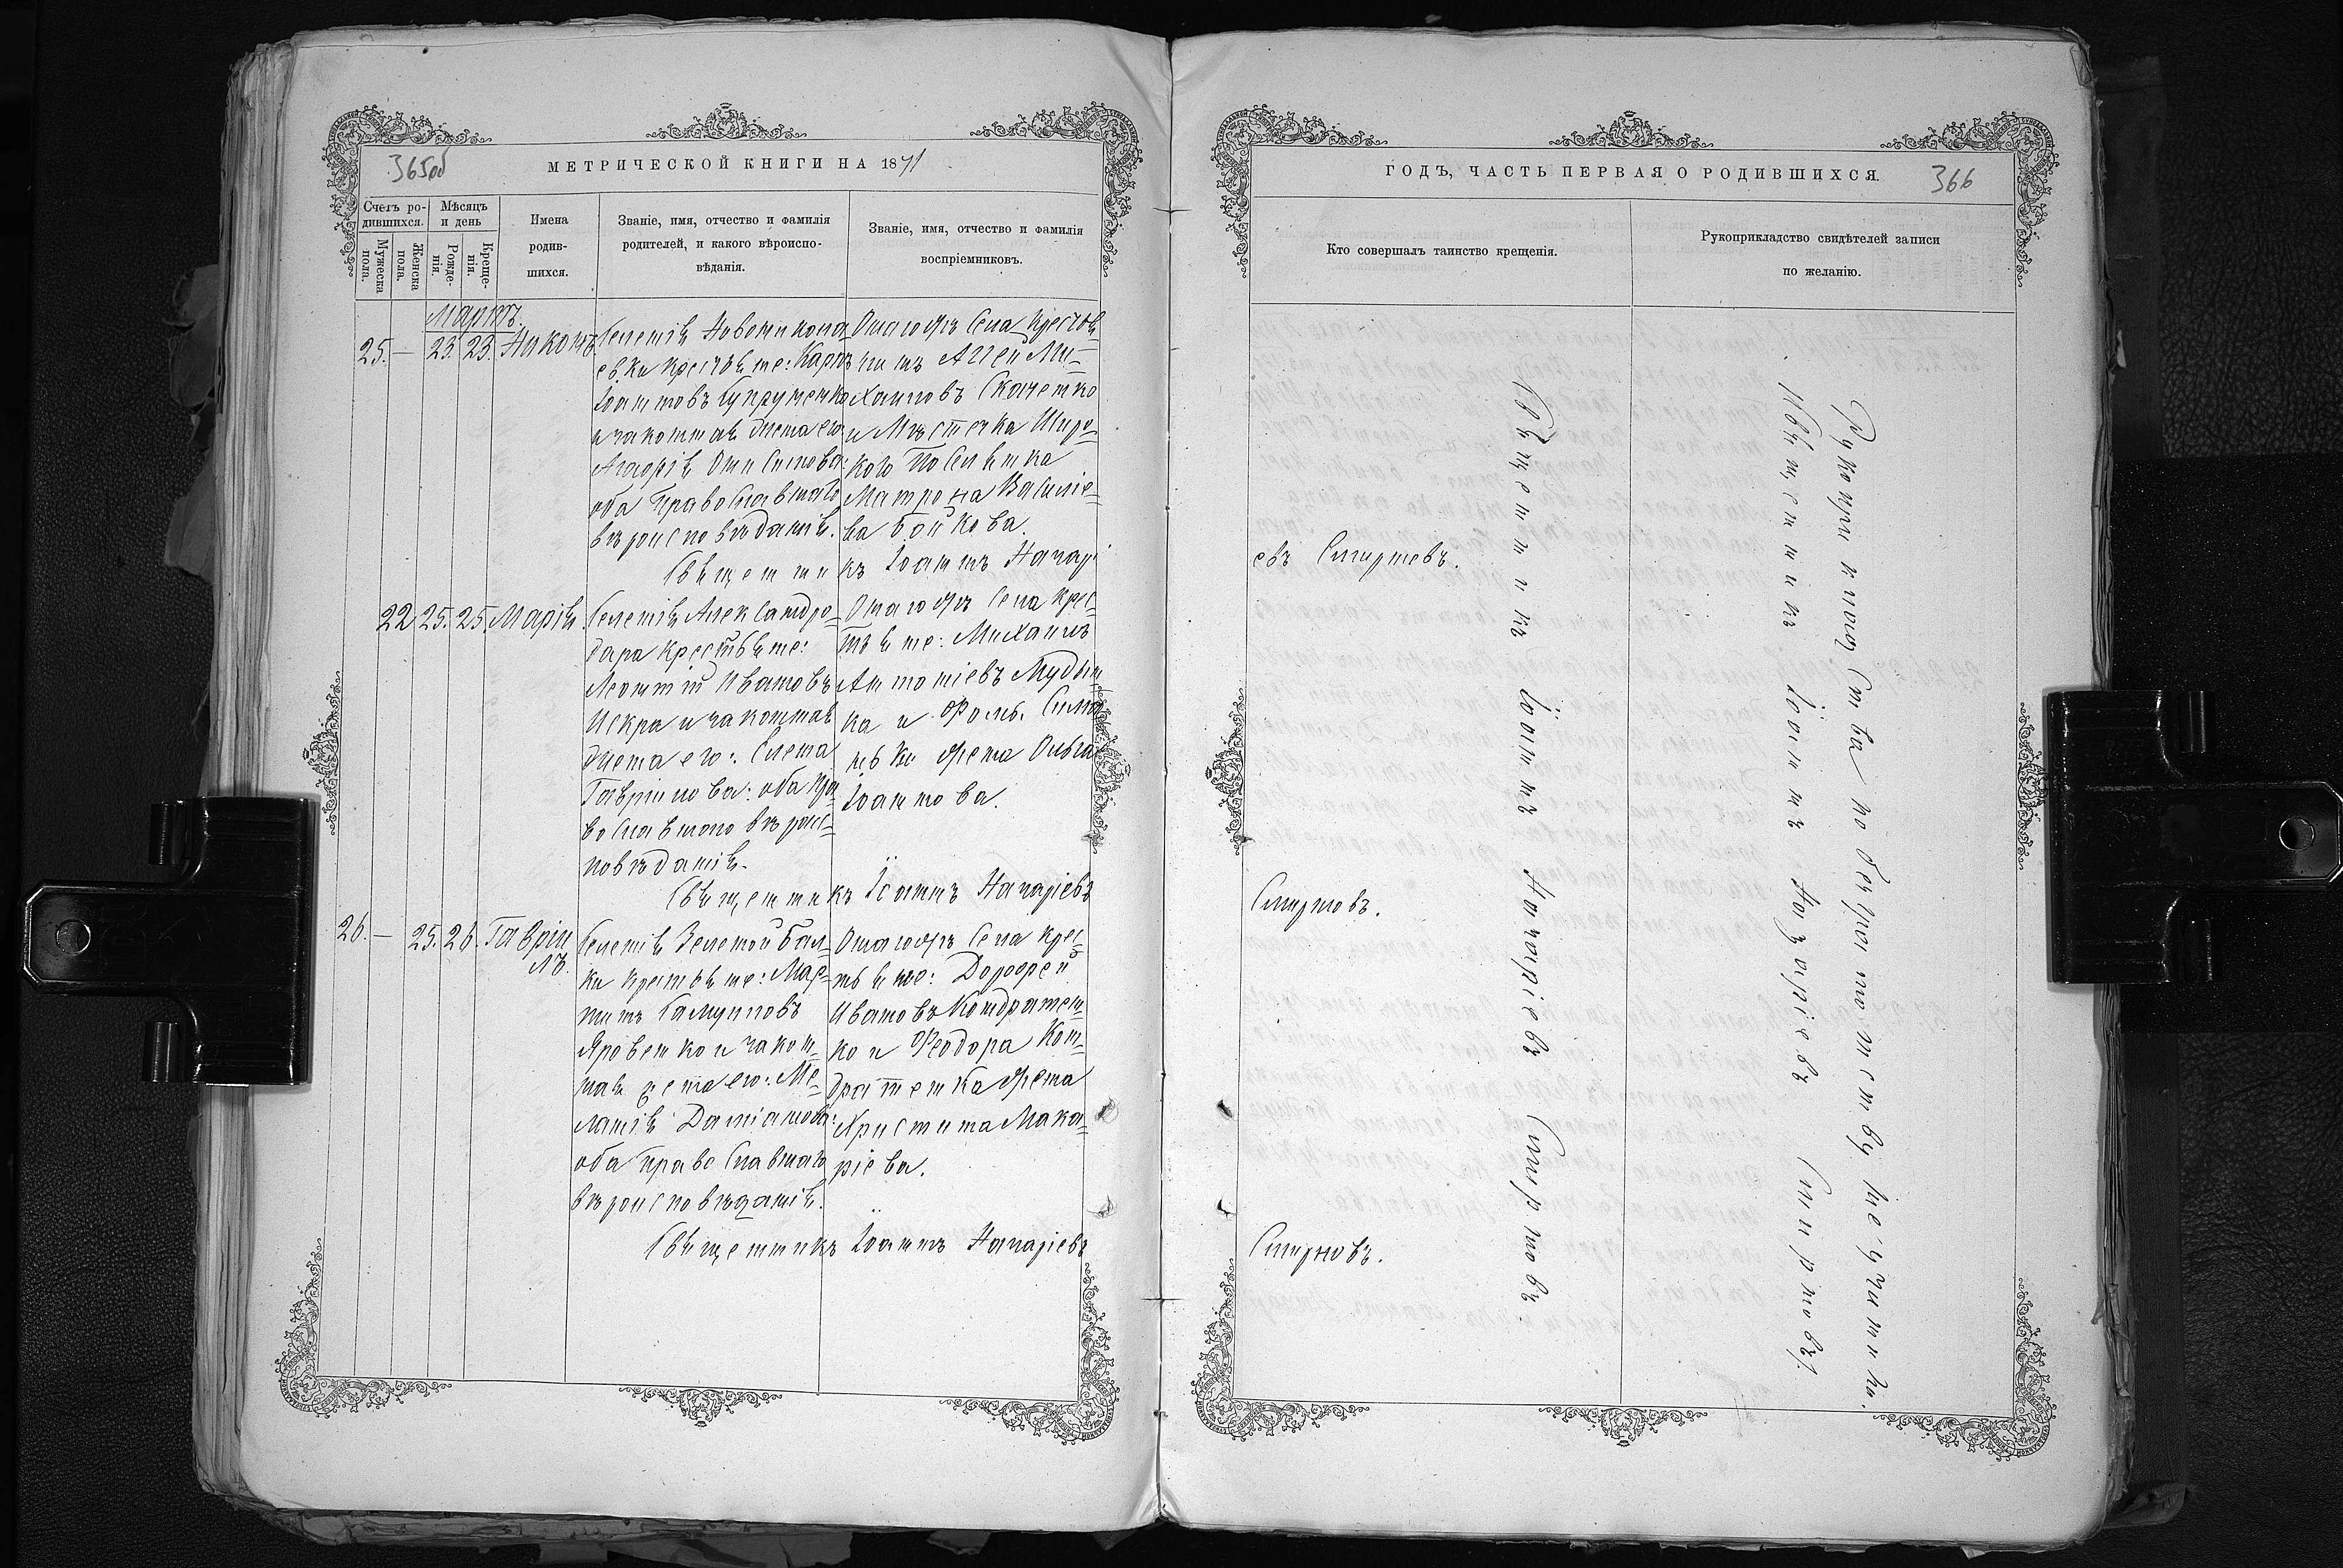 365об
МЕТРИЧЕСКОЙ КНИГИ НА 1871
Счетъ ро-
дившихся.
Мужеска
пола.
Женска
пола.
Мѣсяцъ
и день
Рожде-
нія.
Креще-
нія.
Имена
родив-
шихся.
Званіе, имя, отчество и фамилія
родителей, и какого вѣроиспо-
вѣданія.
Званіе, имя, отчество и фамилія
воспріемниковъ.
Мартъ.
25. — 23. 23. Никонъ.
Селенія Новоника-
евки крестьяне: Карпъ
Іоанновъ Супруненко
и законная жена его
Агафія Онисимова:
оба Православнаго
вѣроисповѣданія.
Онагофъ Села Крестья
нинъ Аггей Ми-
хаиловъ Скаченко
и Мѣстечка Широ-
кого Поселянка
Матрона Василіе-
ва Бойкова.
Священникъ Іоаннъ Назарі
22 25. 25. Марія.
Селенія Александро-
дара крестьяне:
Леонтій Ивановъ
Искра и законная
жена его: Елена
Гавріилова: оба пра-
вославнаго вѣроис-
повѣданія.
Онагофъ Села крес-
тьяне: Михаилъ
Антоніевъ Мудры
ка и Фомы Сина
нька жена Ольга
Іоаннова.
Священникъ Іоаннъ Назаріевъ
26. — 25. 26. Гавріи
лъ.
Селенія Зеленой бал-
ки крестьяне: Мар-
тинъ Самуиловъ
Яровенко и закон-
ная жена его: Ме-
ланія Даміанова:
оба православнаго
вѣроисповѣданія.
Онагофъ Села крес-
тьяне: Дорофей
Ивановъ Кондратен-
ко и Феодора Кон-
дратенка жена
Христина Мака-
ріева.
Священникъ Іоаннъ Назаріевъ
ГОДЪ, ЧАСТЬ ПЕРВАЯ О РОДИВШИХСЯ.
366
Кто совершалъ таинство крещенія.
Рукоприкладство свидѣтелей записи
по желанію.
евъ Смирновъ.
Смирновъ.
Смирновъ.
Священникъ Іоаннъ Назаріевъ Смирновъ
Рукоприкладства по безграмотству не учинили.
Священникъ Іоаннъ Назаріевъ Смирновъ.